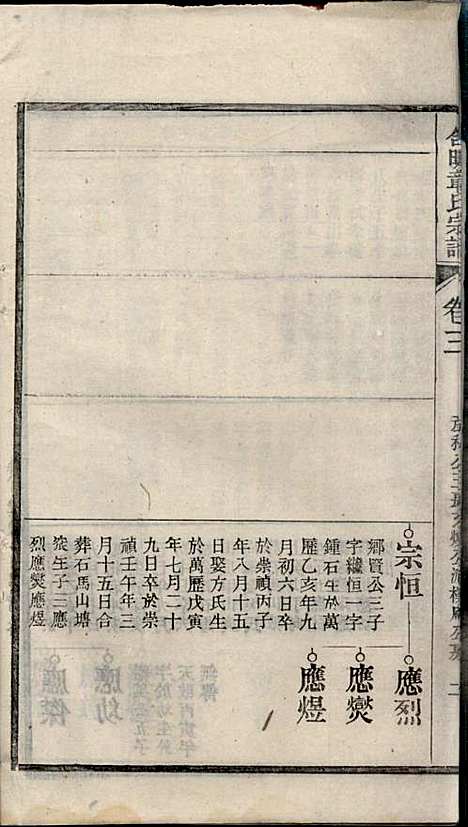 章氏宗譜
卷三
二
宗恒
鄉賢公三子
字繼恒一字
鍾石生於萬
歷乙亥年九
月初六日卒
於崇禎丙子
年八月十五
日娶方氏生
於萬歷戊寅
年七月二十
九日卒於崇
禎壬午年三
月十五日合
葬石馬山塘
生子三應
烈應爕應煜
應烈
應爕
應煜